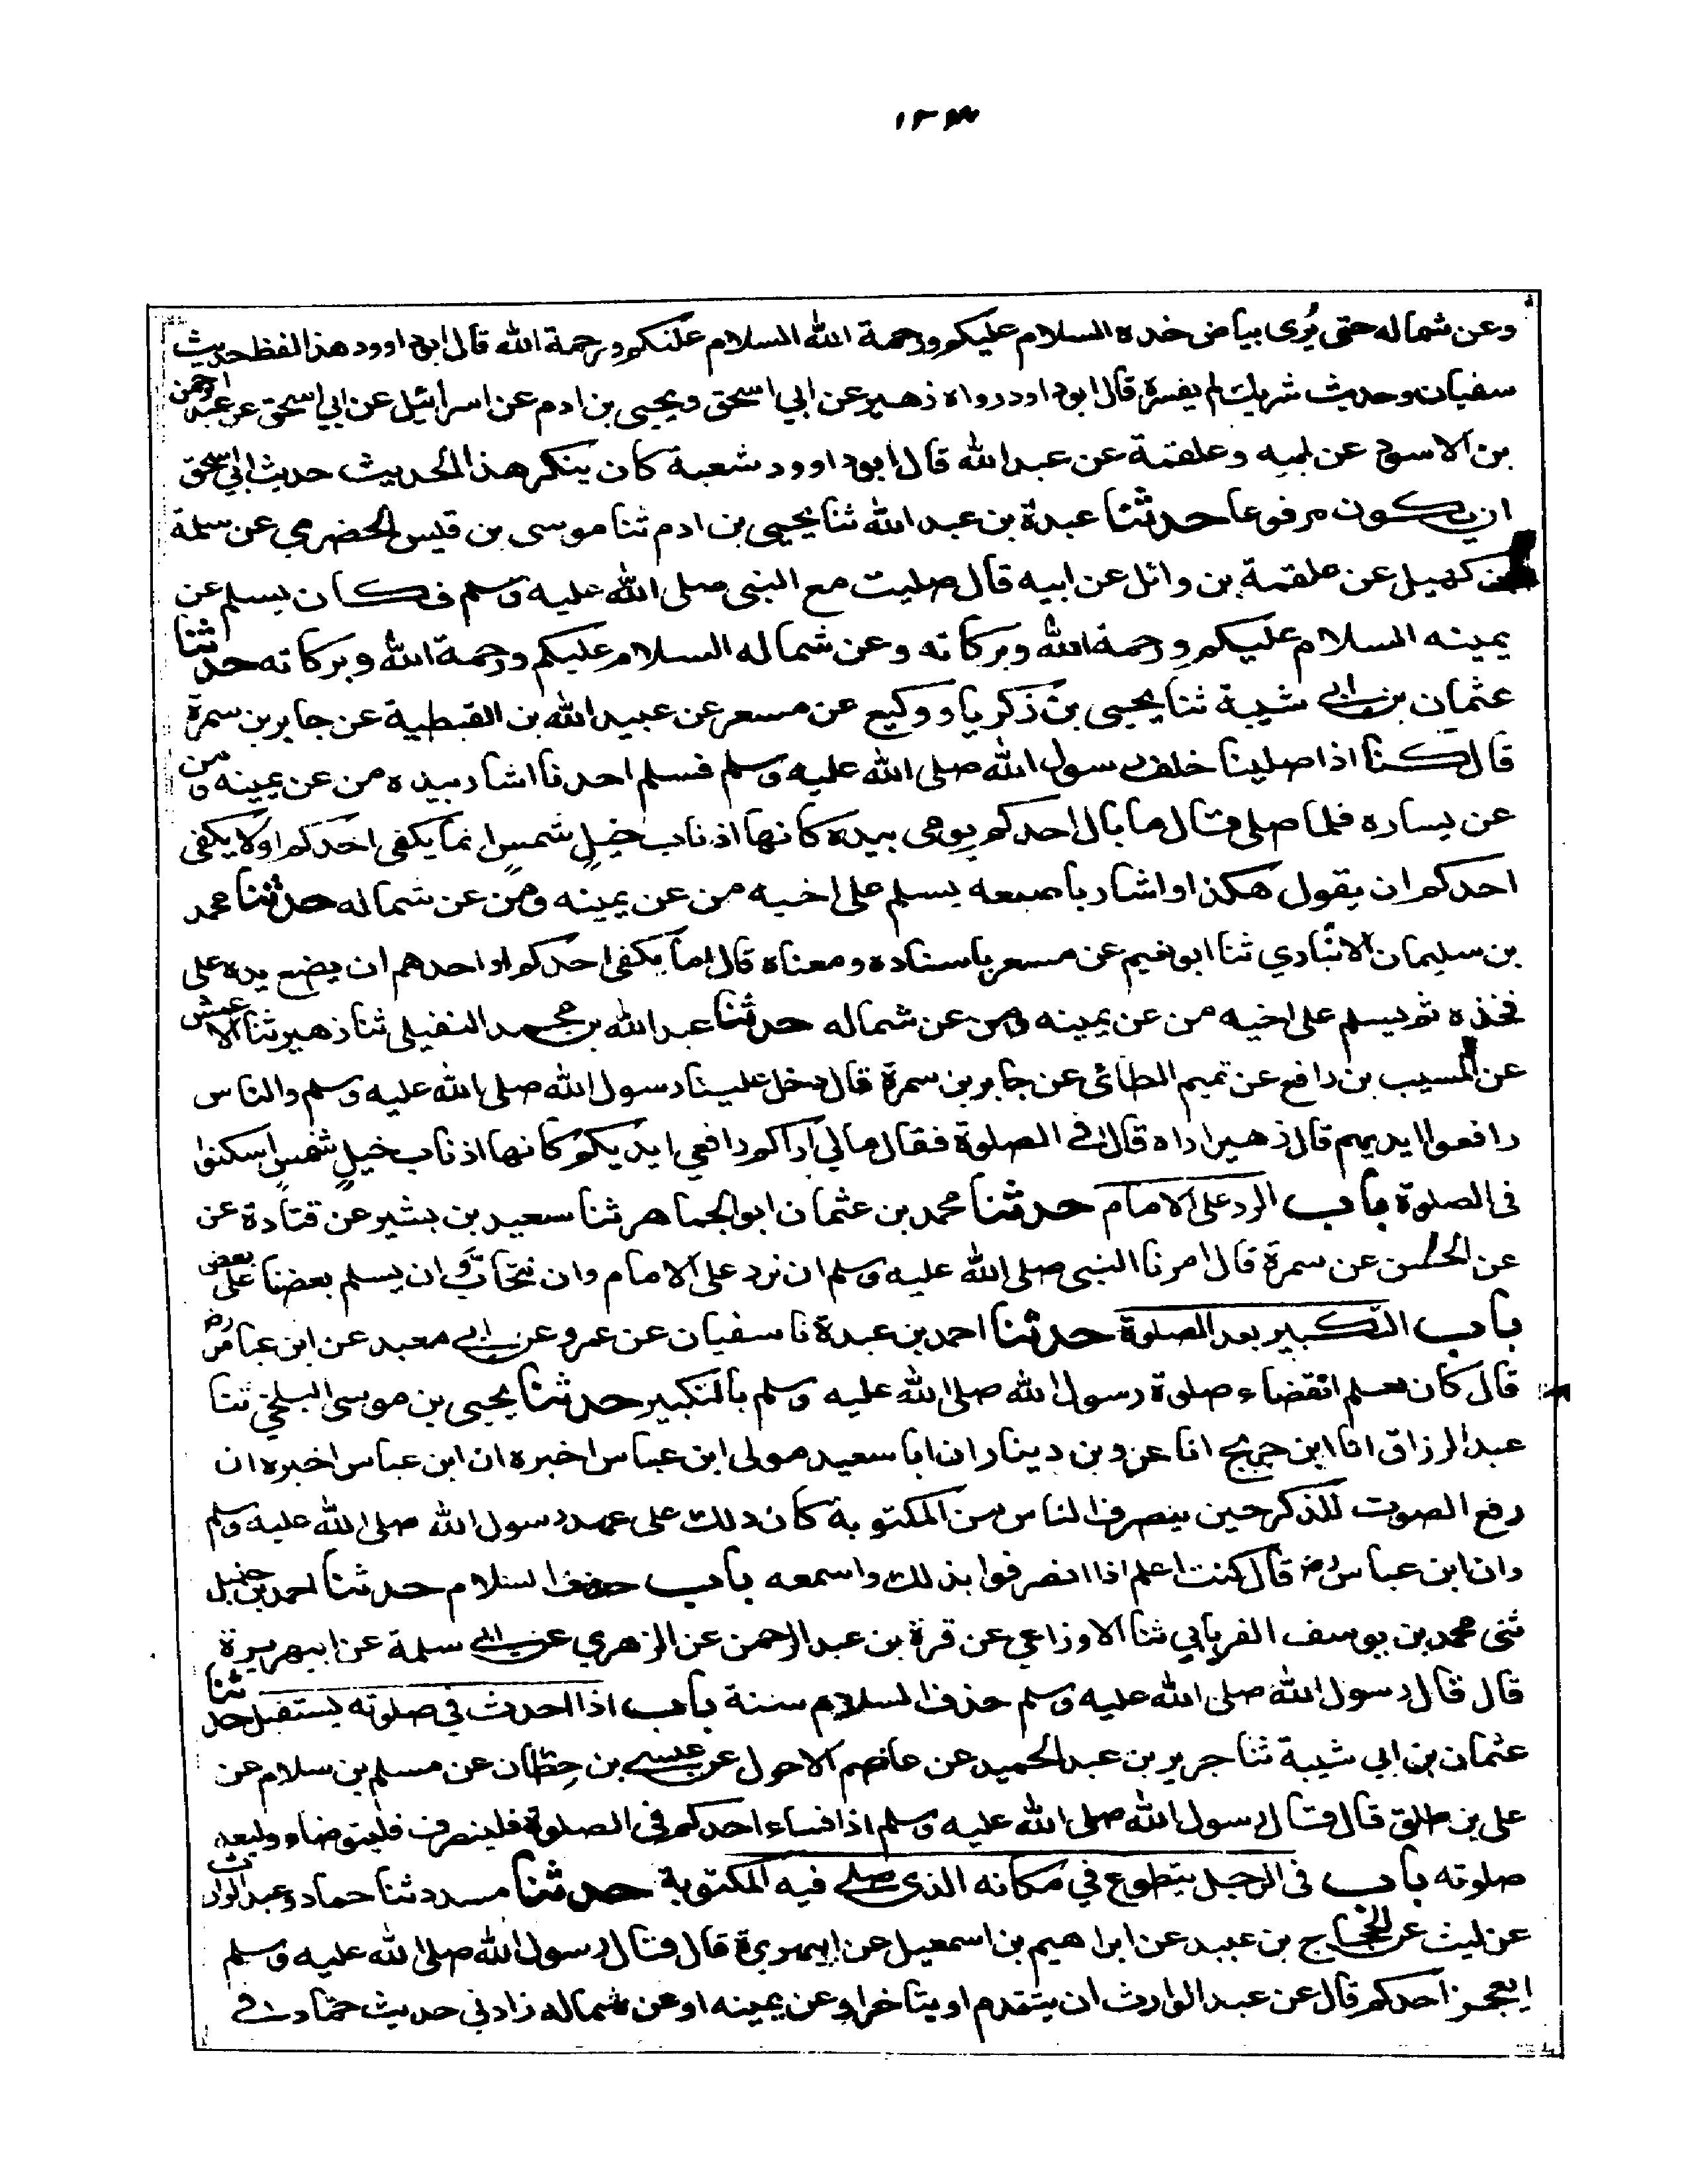 وعن شماله حتى يُرى بياض خده السلام عليكم ورحمة الله السلام عليكم ورحمة الله قال ابو داوود هذا لفظ حديث
سفيان وحديث شريك لم يفسره قال ابو داود رواه زهير عن ابي اسحق ويحيى بن ادم عن اسرائيل عن ابي اسحق عن عبد الرحمن
بن الاسود عن ابيه وعلقمة عن عبد الله قال ابو داوود شعبة كان ينكر هذا الحديث حديث ابي اسحق
ان يكون مرفوعا حدثنا عبدة بن عبد الله ثنا يحيى بن ادم ثنا موسى بن قيس الحضرمي عن سلمة
بن كهيل عن علقمة بن وائل عن ابيه قال صليت مع النبي صلى الله عليه وسلم فكان يسلم عن
يمينه السلام عليكم ورحمة الله وبركاته وعن شماله السلام عليكم ورحمة الله وبركاته حدثنا
عثمان بن ابي شيبة ثنا يحيى بن زكريا ووكيع عن مسعر عن عبيد الله بن القبطية عن جابر بن سمرة
قال كنا اذا صلينا خلف رسول الله صلى الله عليه وسلم فسلم احدنا اشار بيده من عن يمينه ومن
عن يساره فلما صلى قال ما بال احدكم يومى بيده كانها اذناب خيلٍ شمسٍ انما يكفى احدكم اولا يكفى
احدكم ان يقول هكذا واشار باصبعه يسلم على اخيه من عن يمينه ومن عن شماله حدثنا محمد
بن سليمان الانباري ثنا ابو نعيم عن مسعر باسناده ومعناه قال اما يكفى احدكم او احدهم ان يضع يده على
فخذه ثم يسلم على اخيه من عن يمينه ومن عن شماله حدثنا عبد الله بن محمد النفيلي ثنا زهير ثنا الاعمش
عن المسيب بن رافع عن تميم الطائي عن جابر بن سمرة قال دخل علينا رسول الله صلى الله عليه وسلم والناس
رافعوا ايديهم قال زهير اراه قال في الصلوة فقال مالي اراكم رافعي ايديكم كانها اذناب خيلٍ شمسٍ اسكنوا
في الصلوة باب الرد على الامام حدثنا محمد بن عثمان ابو الجماهر ثنا سعيد بن بشير عن قتادة عن
عن الحسن عن سمرة قال امرنا النبي صلى الله عليه وسلم ان نرد على الامام وان نتحاب وان يسلم بعضنا على بعض
باب التكبير بعد الصلوة حدثنا احمد بن عبدة نا سفيان عن عمرو عن ابي معبد عن ابن عباس رض
قال كان يعلم انقضاء صلوة رسول الله صلى الله عليه وسلم بالتكبير حدثنا يحيى بن موسى البلخي ثنا
عبد الرزاق انا ابن جريج انا عمرو بن دينار ان ابا سعيد مولى ابن عباس اخبره ان ابن عباس اخبره ان
رفع الصوت للذكر حين ينصرف الناس من المكتوبة كان ذلك على عهد رسول الله صلى الله عليه وسلم
وان ابن عباس رض قال كنت اعلم اذا انصرفوا بذلك واسمعه باب حذف السلام حدثنا احمد بن حنبل
ثنى محمد بن يوسف الفريابي ثنا الاوزاعي عن قرة بن عبد الرحمن عن الزهري عن ابي سلمة عن ابيهريرة
قال قال رسول الله صلى الله عليه وسلم حذف السلام سنة باب اذا احدث في صلوته يستقبل حدثنا
عثمان بن ابي شيبة ثنا جرير بن عبد الحميد عن عاصم الاحول عن عيسى بن حطان عن مسلم بن سلام عن
على بن طلق قال قال رسول الله صلى الله عليه وسلم اذا فساء احدكم في الصلوة فلينصرف فليتوضاء وليعد
صلوته باب في الرجل يتطوع في مكانه الذي صلى فيه المكتوبة حدثنا مسدد ثنا حماد وعبد الوارث
عن ليث عن الحجاج بن عبيد عن ابراهيم بن اسمعيل عن ابيهريرة قال قال رسول الله صلى الله عليه وسلم
ايعجز احدكم قال عن عبد الوارث ان يتقدم او يتاخر او عن يمينه او عن شماله زاد في حديث حماد في